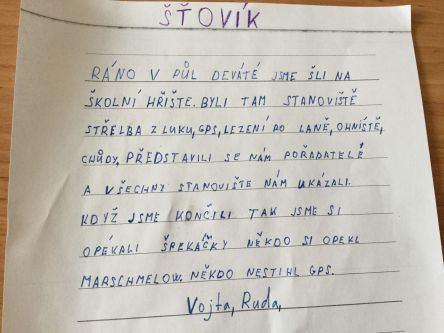 ŠŤOVÍK
RÁNO V PŮL DEVÁTÉ JSME ŠLI NA
ŠKOLNÍ HŘIŠTE. BYLI TAM STANOVIŠTĚ
STŘELBA Z LUKU, GPS, LEZENÍ PO LANĚ, OHNIŠTĚ,
CHŮDY. PŘEDSTAVILI SE NÁM POŘADATELÉ
A VŠECHNY STANOVIŠTE NÁM UKÁZALI.
KDYŽ JSME KONČILI TAK JSME SI
OPÉKALI ŠPEKÁČKY NĚKDO SI OPEKL
MARSCHMELOW. NĚKDO NESTIHL GPS.
Vojta, Ruda,